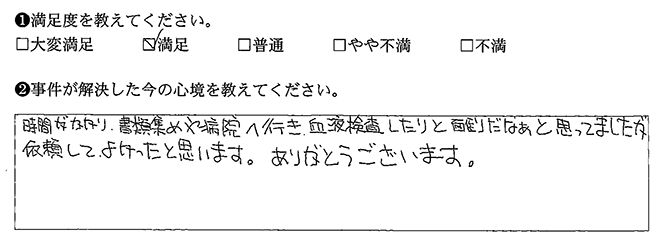 ❶満足度を教えてください。
□大変満足 ☑満足 □普通 □やや不満 □不満
❷事件が解決した今の心境を教えてください。
時間がかかり、書類集めや病院へ行き、血液検査したりと面倒だなぁと思ってましたが
依頼して、よかったと思います。ありがとうございます。